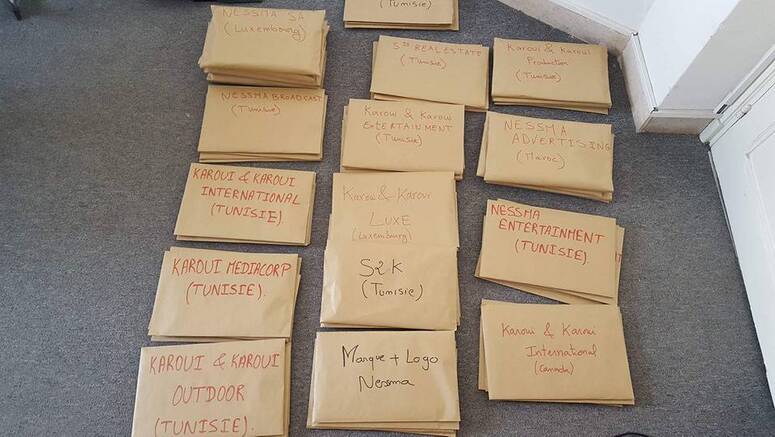 (Tunisie)
NESSMA SA
(Luxembourg)
NESSMA BROADCAST
(Tunisie)
KAROUI & KAROUI
INTERNATIONAL
(TUNISIE)
KAROUI MEDIACORP
(TUNISIE).
KAROUI & KAROUI
OUTDOOR
(TUNISIE)
REAL ESTATE
(Tunisie)
Karoui & Karoui
ENTERTAINMENT
(Tunisie)
Karoui & Karoui
LUXE
(Luxembourg)
S2K
(Tunisie)
Marque + Logo
Nessma
Karoui & Karoui
Production
(Tunisie)
NESSMA
ADVERTISING
(Maroc)
NESSMA
ENTERTAINMENT
(TUNISIE).
Karoui & Karoui
International
(Canada)